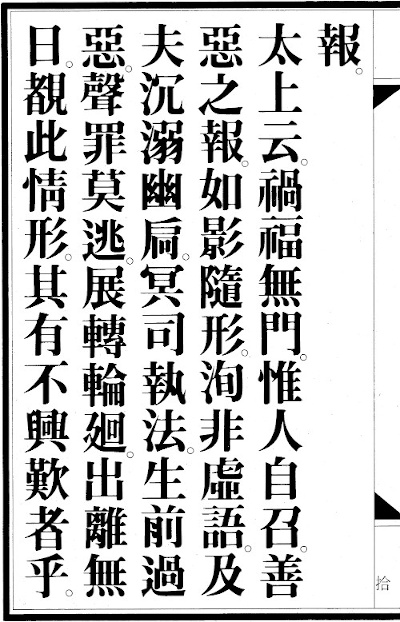 報。
太上云。禍福無門。惟人自召。善
惡之報。如影隨形。洵非虛語。及
夫沉溺幽扃。冥司執法。生前過
惡。聲罪莫逃。展轉輪廻。出離無
日。覩此情形。其有不興歎者乎。
拾